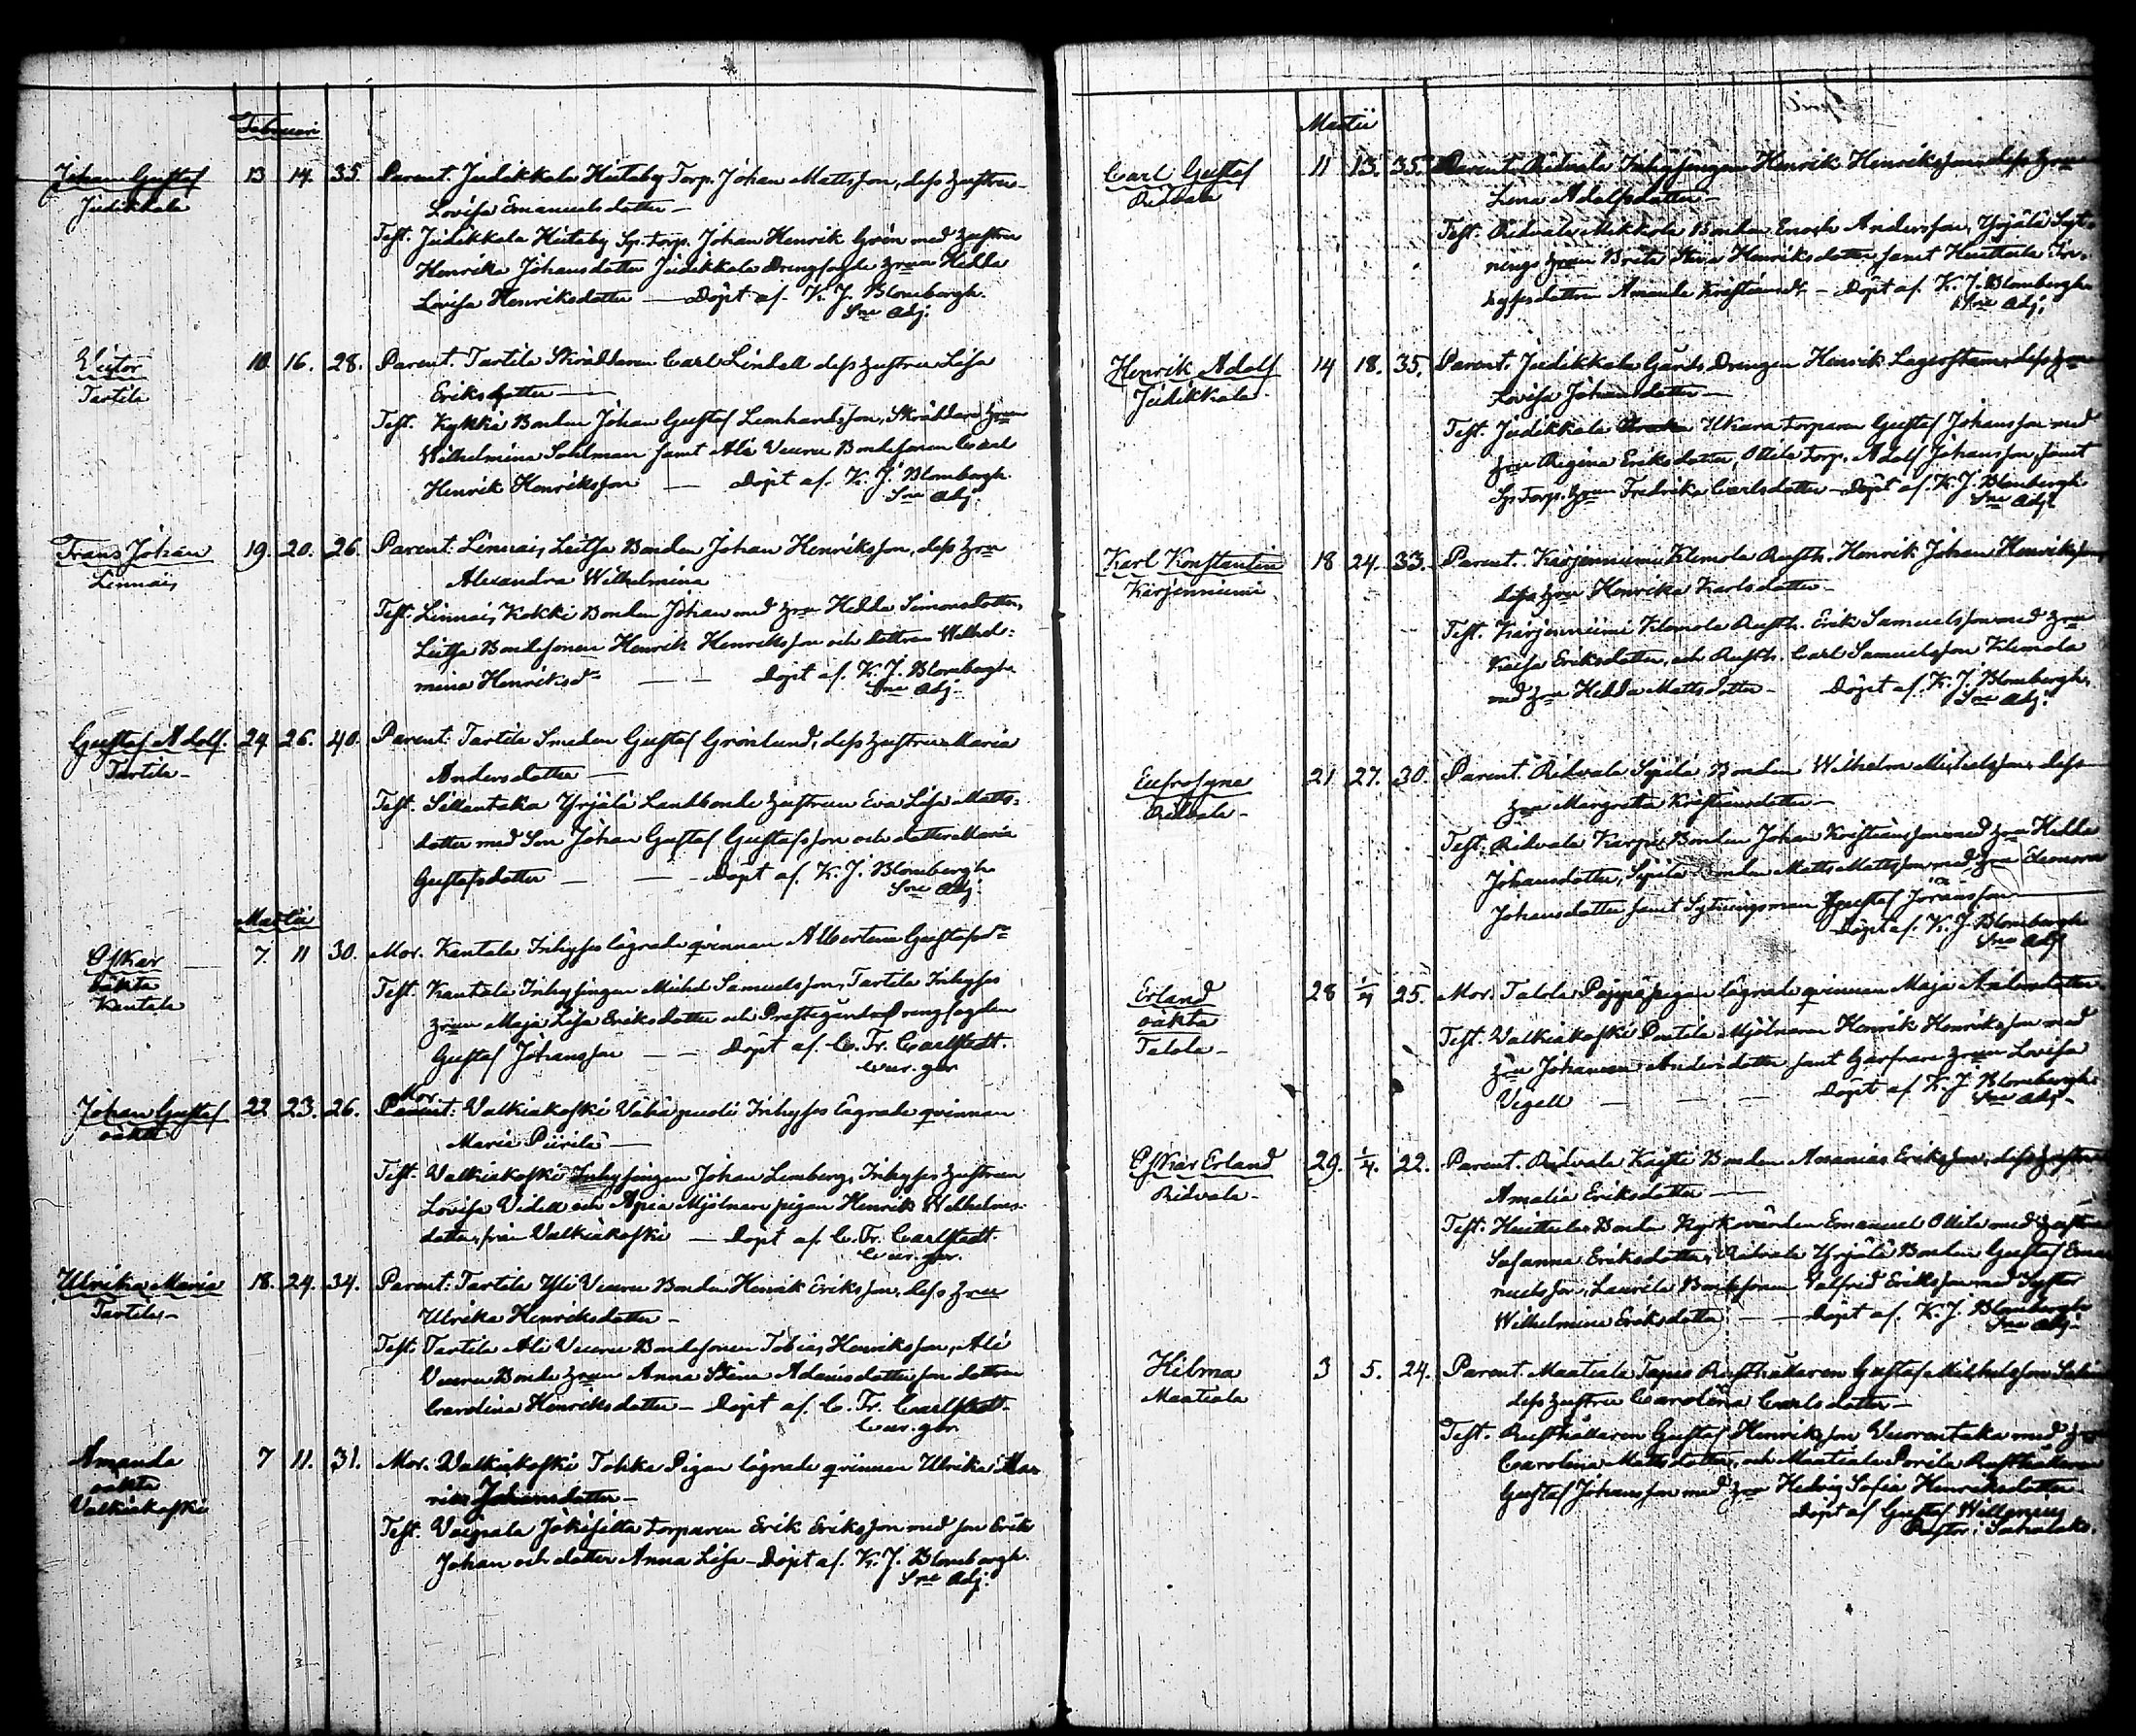 Februari
Johan Gustaf 13 14. 35. Parent. Judikkala Huitaby Torp. Johan Mattsson, dess hustru
Judikkala Lovisa Emanuelsdotter —
Test. Judikkala Huitaby Sp. torp. Johan Henrik Grön med hustru
Henrika Johansdotter Judikkala Drengfogde hrun Hedda
Lovisa Henriksdotter — Döpt af K. J. Blombergh.
Sne Adj.
Victor 10. 16. 28. Parent. Tarttila Skräddaren Carl Lindell dess hustru Lisa
Tarttila Eriksdotter —
Test. Kykki Bonden Johan Gustaf Leonhardsson, Skräddare hrun
Wilhelmina Sohlman samt Ali Uuru Bondesonen Carl
Henrik Henriksson — Döpt af K. J. Blombergh.
Sne Adj.
Frans Johan 19. 20. 26. Parent. Linnais, Bonden Johan Henriksson, dess hru
Linnais Alexandra Wilhelmina
Test. Linnais, Kokki Bonden Johan med hru Hedda Simonsdotter,
Bondesonen Henrik Henriksson och dottren Wilhel-
mina Henriksdr — — Döpt af K. J. Blombergh
Sne Adj.
Gustaf Adolf. 24 26. 40. Parent. Tarttila Smeden Gustaf Grönlund, dess hustru Maria
Tarttila - Andersdotter —
Test. Sillantaka Yrjälä Landbonde hustrun Eva Lisa Matts-
dotter med Son Johan Gustaf Gustafsson och dotter Maria
Gustafsdotter — — Döpt af K. J. Blombergh
Sne Adj.
Martii
Oskar 7. 11 30. Mor. Kantala Inhyses lägrade qvinnan Albertina Gustafsdr
oäkta
Kantala Test. Kantala Inhysingen Michel Samuelsson, Tarttila Inhyses
hrun Maja Lisa Eriksdotter och Prestegårds Drengfogden
Gustaf Johansson — — Döpt af C. Fr. Carlstedt.
Cur. gör.
Johan Gustaf 22 23. 26. Mor
oäkta Parent: Walkiakoski Vähäpuoli Inhyses Lägrade qvinnan
Maria Piirilä —
Test. Walkiakoski Inhysingen Johan Lemberg, Inhyses hustrun
Lovisa Videll och Apia Mjölnare pigan Henrik Wilhelms-
dotter, från Walkiakoski — Döpt af C. Fr. Carlstedt.
Cur. gör.
Ulrika Maria 18. 24. 34. Parent: Tarttila Yli Uuru Bonden Henrik Eriksson, dess hru
Tarttila, - Ulrika Henriksdotter -
Test. Tarttila Ali Uuru Bondesonen Tobias Henriksson, Ali
Uuru Bonde hrun Anna Stina Adamsdotter dottren
Carolina Henriksdotter — Döpt af C. Fr. Carlstedt.
Cur. gör.
Amanda 7 11. 31. Mor. Walkiakoski Tohka Pigan lägrade qvinnan Ulrika Ma-
oäkta ria Johansdotter —
Walkiakoski Test. Voipala Jokisilta torparen Erik Eriksson med son Erik
Johan och dotter Anna Lisa — Döpt af. K. J. Blombergh
Sne Adj.
April
Martii
Carl Gustaf 11 13. 35. Parent. Ridvala Inhysingen Henrik Henriksson dess hru
Ridvala Lena Adolfsdotter —
Test. Ridvala Mikkola Bonden Enoch Andersson, Yrjälä Syt-
nings hrun Brita Stina Henriksdotter samt Huittula In-
hysesdottren Amanda Kristiansdr — Döpt af. K. J. Blombergh
Sne Adj.
Henrik Adolf 14 18. 35. Parent. Judikkala Gårds Drengen Henrik Lagerstam, dess hru
Judikkala. Lovisa Johansdotter —
Test. Judikkala Ilkara torparen Gustaf Johansson med
hru Regina Eriksdotter, Ottila torp. Adolf Johansson, samt
Sp. Torp. hrun Fredrika Carlsdotter — Döpt af. K. J. Blombergh
Sne Adj.
Karl Konstantin 18 24. 33. Parent. Kärjenniemi Klemola Rusth. Henrik Johan Henriksson,
Kärjenniemi dess hru Henrika Karlsdotter —
Test. Kärjenniemi Klemola Rusth. Erik Samuelsson med hru
Kaisa Eriksdotter, och Rusth. Carl Samuelsson Klemola
med hru Hedda Mattsdotter — Döpt af. K. J. Blombergh,
Sne Adj.
Eufrosyne 21 27. 30. Parent. Ridvala Sipilä Bonden Wilhelm Michelsson, dess
Ridvala - hru Margreta Kristiansdotter —
Test. Ridvala Karpi Bonden Johan Kristiansson med hru Hedda
Johansdotter, Sipilä Bonden Matts Mattsson med hru Eleonora
Johansdotter samt Sytningsman Gustaf Jöransson
Döpt af. K. J. Blombergh
Sne Adj.
Erland 28 1/4 25. Mor. Talola Pigan lägrade qvinnan Maja Andersdotter.
oäkta
Talola - Test. Walkiakoski Mjölnaren Henrik Henriksson med
hru Johanna Andersdotter samt Garfvare hrun Lovisa
Vegell — — — Döpt af K. J. Blombergh
Sne Adj.
Oskar Erland 29. 1/4. 22. Parent. Ridvala Bonden Ananias Eriksson, dess hustru
Ridvala - Amalia Eriksdotter —
Test. Huittula Bonden Kyrkovärden Emanuel Ottila med hustru
Susanna Eriksdotter, Ridvala Yrjälä Bonden Gustaf Ema-
nuelsson, Laurila Bondesonen Valfrid Eriksson med Syster
Wilhelmina Eriksdotter — — Döpt af. K. J. Blombergh
Sne Adj.
Hilma 3 5. 24. Parent. Maatiala Tapio Rusthållaren Gustaf Michelsson
Maatiala dess hustru Carolina Carlsdotter —
Test. Rusthållaren Gustaf Henriksson Vuorentaka med hru
Carolina Mattsdotter, och Maatiala Dorila Rusthållaren
Gustaf Johansson med hru Hedvig Sofia Henriksdotter
Döpt af Gustaf Wallenius
Pastor i Sahalaks.